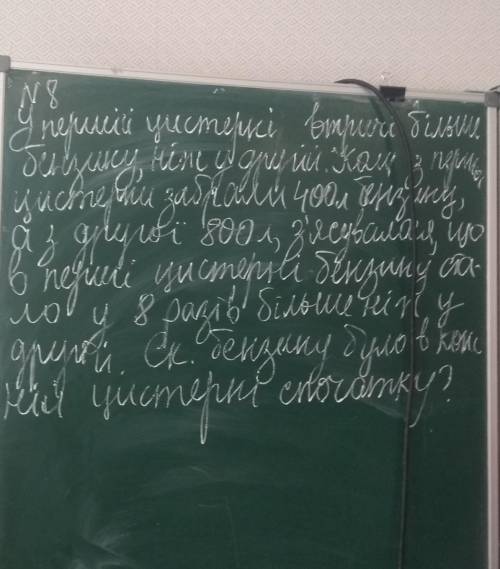 N8
У першій цистерні втричі більше
бензину, ніж у другій. Кол з першої
цистерни забрали 400л бензину,
а з другої 800л, з'ясувалася, що
в першій цистерні бензину ста-
ло у 8 разів більше ніж у
другій. Ск. бензину було в кож
ній цистерні спочатку?